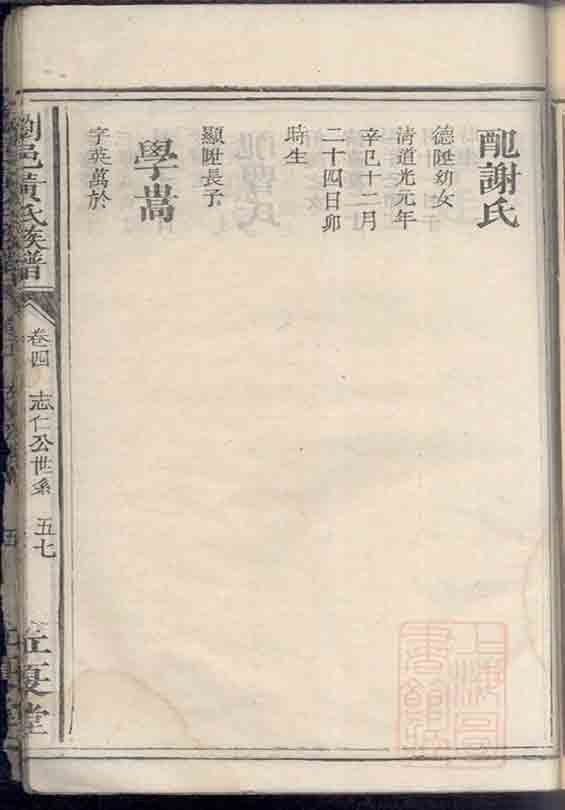 配謝氏
德陞幼女
清道光元年
辛巳十二月
二十四日卯
時生
顯陞長子
學嵩
字英萬於
劉邑黃氏族譜
卷四
志仁公世系
五七